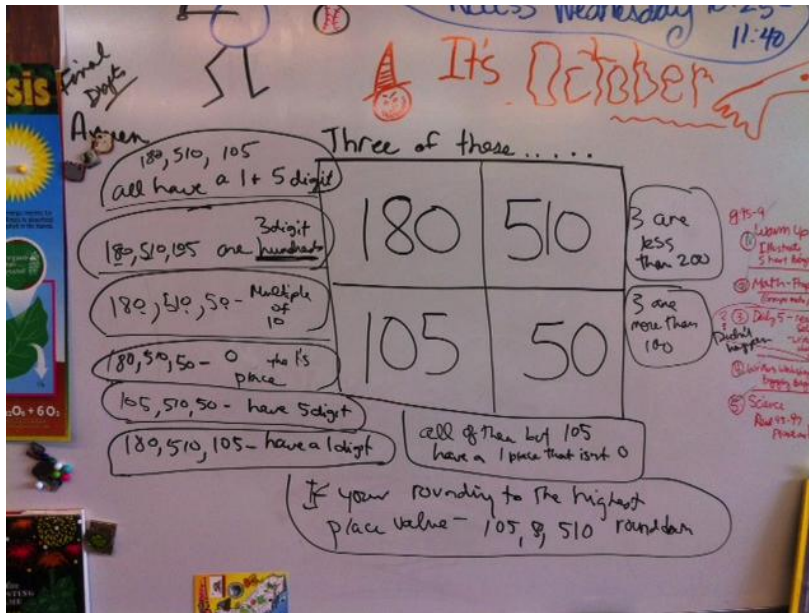 Recess Wednesday
11:40
It's October
Final
Drafts
sis
Three of these.....
180, 510, 105
all have a 1 + 5 digit
180, 510, 105 are 3 digit
hundreds
180, 510, 50 - Multiple
of
10
180, 510, 50 - 0 the 1's
place
105, 510, 50 - have 5 digit
180, 510, 105 - have a 1 digit
180
510
105
50
3 are
less
than 200
3 are
more than
100
all of them but 105
have a 1 place that isnt 0
If your rounding to the highest
place value - 105, 8, 510 round down
Warm up
Illustrate
Math-
Daily 5 -
Didn't
happen
5 Science
2O5 + 6O2